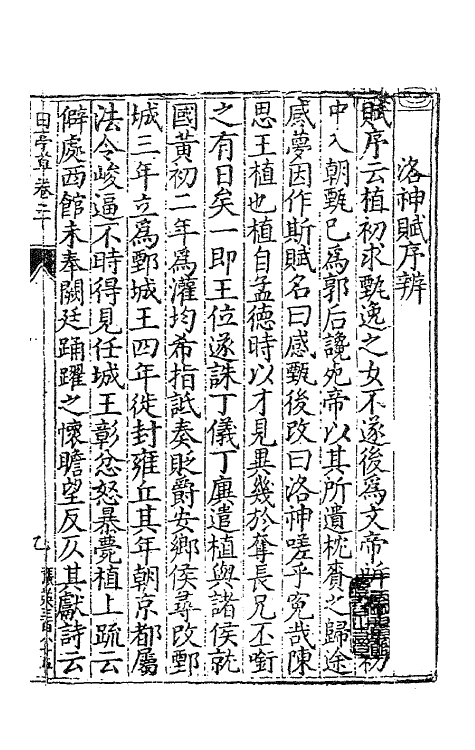 洛神賦序辨
賦序云植初求甄逸之女不遂後爲文帝所 初
中入朝甄已爲郭后讒死帝以其所遺枕賚之歸途
感夢因作斯賦名曰感甄後改曰洛神嗟乎冤哉陳
思王植也植自孟德時以才見異幾於奪長兄丕銜
之有日矣一即王位遂誅丁儀丁廙遣植與諸侯就
國黃初二年爲灌均希指詆奏貶爵安鄉侯尋改鄄
城三年立爲鄄城王四年徙封雍丘其年朝京都屬
法令峻逼不時得見任城王彰忿怒暴薨植上疏云
僻處西館未奉闕廷踊躍之懷瞻望反仄其獻詩云
田亭草卷二十
乙